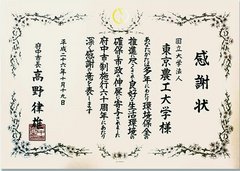 感謝状
国立大学法人
東京農工大学様
あなたは多年にわたり環境保全の
推進に尽くされ良好な生活環境の
確保と市政の伸展に寄与されました
府中市制施行六十周年にあたり
深く感謝の意を表します
平成二十六年十月十九日
府中市長 高野律雄